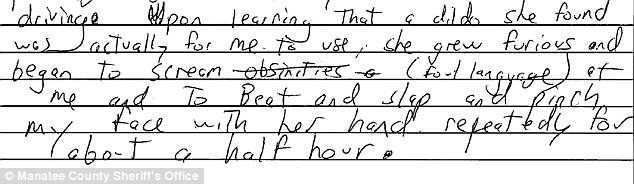 driving. Upon learning that a dildo she found
was actually for me to use, she grew furious and
began to scream obsinities a (foul language) at
me and to Beat and slap and pinch
my face with her hand repeatedly for
about a half hour.
© Manatee County Sheriff's Office